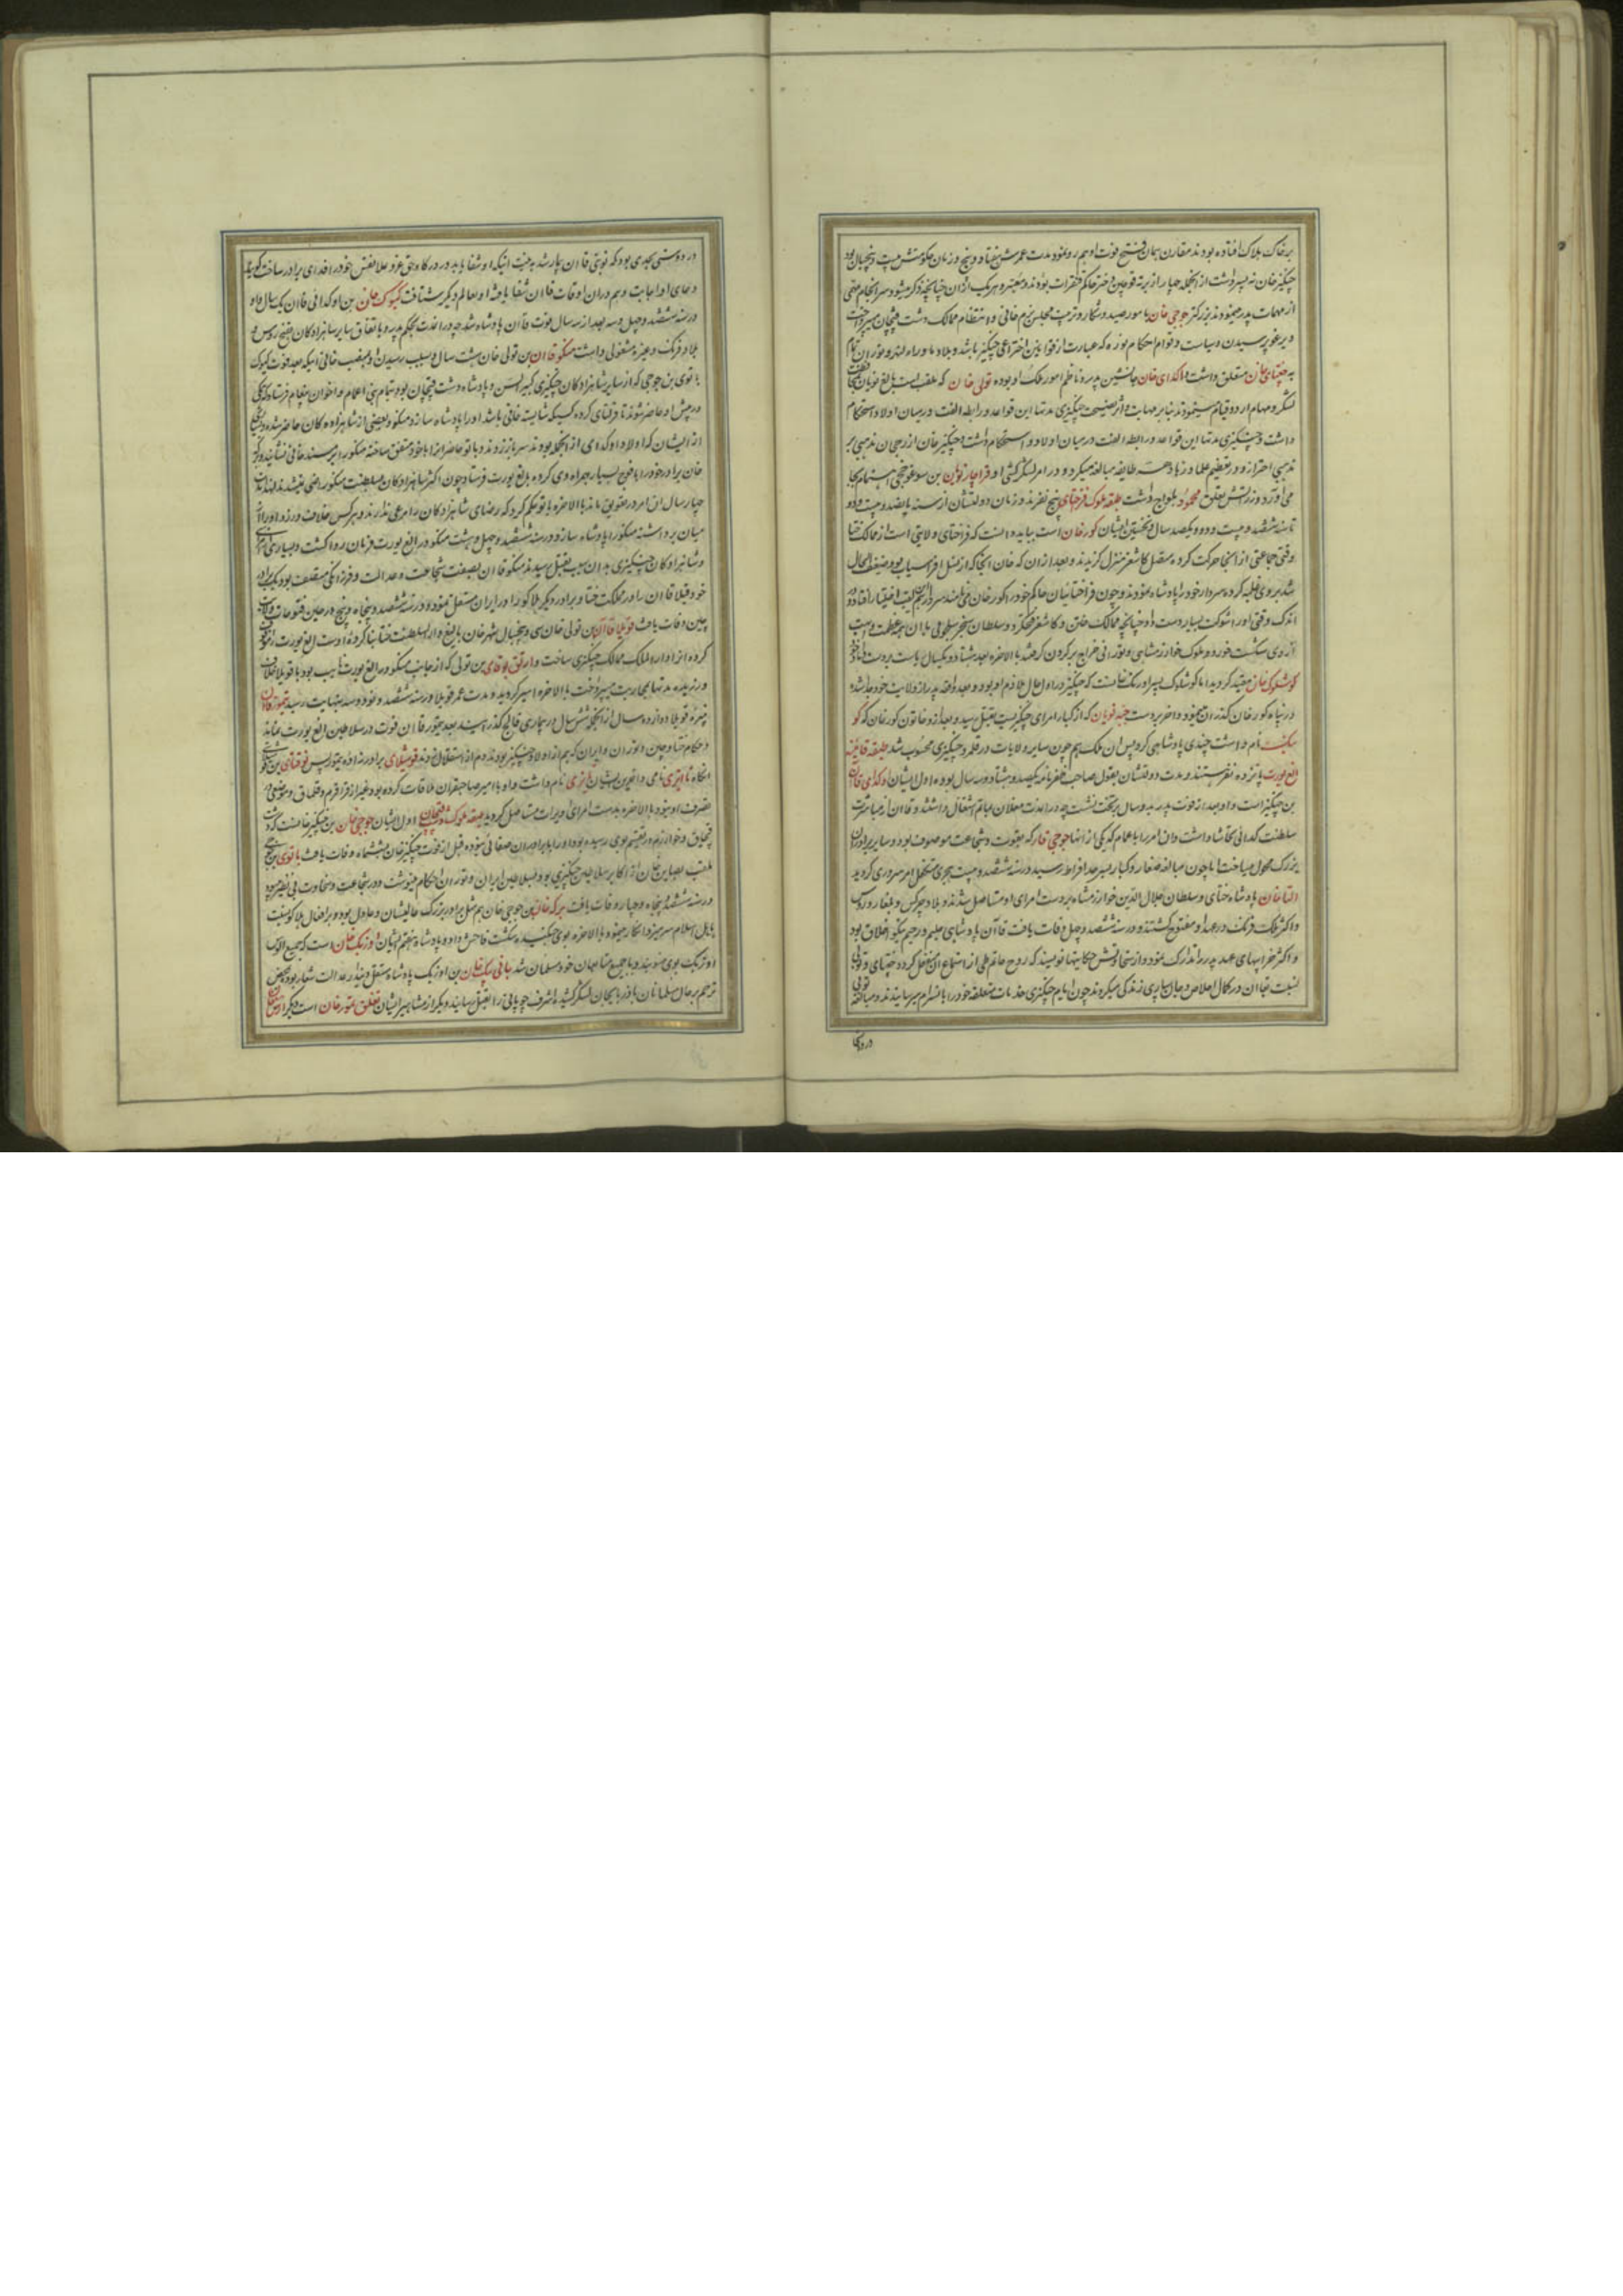 بر خاک هلاک افتاده بودند مقارن همان فتح فوت او هم روی نمود مدت عمرش هفتاد و پنج و زمان حکومتش بیست و پنج سال بود
چنگیز خان نه پسر داشت از آنجمله چهار از برته قوچین دختر حاکم قنقرات بودند و معتبر و هر یک از آن چنانچه ذکر میشود سرانجام مهمی
از مهمات پدر مینمودند بزرگتر جوجی خان بامور صید و شکار و ترتیب مجلس بزم خانی و انتظام ممالک دشت قپچاق میپرداخت
و یرغو پرسیدن و سیاست و قوام احکام توره که عبارت از قوانین اختراعی چنگیز باشد و بلاد ماوراء النهر و توران تمام
به جغتای خان متعلق داشت و اکدای خان جانشین پدر و ناظم امور ملک او بوده تولی خان که ملقب است بالغ نویان
لشکر و مهام اردو قیام مینمودند بنابر مهابت و اثر نصیحت چنگیزی مدتها این قواعد و رابطه الفت در میان اولاد و استحکام
داشت و چنگیزی مدتها این قواعد و رابطه الفت در میان اولاد و استحکام داشت و چنگیز خان از رجحان مذهبی بر
مذهبی احتراز و در تعظیم علما و زهاد هر طایفه مبالغه میکرد و در امر لشکرکشی او قراچار نویان بن سوغوجچی اهتمام بجا
می آورد و وزارتش بتعلق محمود یلواج داشت طبقه ملوک قراختای پنج نفرند و زمان دولتشان از سنه پانصد و بیست و دو
تا سنه ششصد و بیست و دو و یکصد سال و نخستین ایشان کور خان است بباید دانست که قراختای ولایتی است از ممالک ختا
وقتی جماعتی از آنجا حرکت کرده متصل کاشغر منزل گزیدند و بعد از آن که خان آنجا که از نسل افراسیاب بود ضعیف الحال
شد بروی غلبه کرده سردار خود را پادشاه نمودند و چون قراختائیان حاکم خود را کور خان می نامند سردار هم لقب اختیار افتاد و در
اندک وقتی او را شوکت بسیار دست داد چنانچه ممالک ختن و کاشغر فتح کرد و سلطان سنجر سلجوقی با آن همه عظمت و هیبت
از وی شکست خورد و ملوک خوارزمشاهی و تورانی خراج بر گردن گرفتند بالاخره بعد هشتاد و یکسال
کوشلوک خان مقید گردید اما کوشلوک پسر اورنک خانست که چنگیز در اول حال ملازم او بود و بعد واقعه پدر از ولایت خود جدا شده
در پناه کور خان گذران مینمود و آخر بر دست جبه نویان که از کبار امرای چنگیزیست بقتل رسید و بعد از و خاتون کور خان که کو
نام داشت چندی پادشاهی کرد پس آن ملک هم چون سایر ولایات در قلمرو چنگیزی محسوب شد طبقه قاآنیه
الغ یورت پانزده نفر هستند و مدت دولتشان بقول صاحب ظفرنامه یکصد و هشتاد و سه سال بوده اول ایشان اوکدای قاآن
بن چنگیز است و او بعد از فوت پدر بدو سال بر تخت نشست چه در این مدت مغلان بماتم اشتغال داشتند و قاآن از مباشرت
سلطنت کدائی تحاشا داشت و آن امر را باعمام که یکی از آنها جوجی قسار که بقوت و شجاعت موصوف بود و سایر برادران
بزرگ محول میساخت اما چون مبالغه صغار و کبار بسر حد افراط رسید در سنه ششصد و بیست هجری متکفل امر سروری گردید
التا خان پادشاه ختای و سلطان جلال الدین خوارزمشاه بر دست امرای او مستاصل شدند و بلاد چرکس و بلغار و روس
و اکثر ملک فرنک در عهد او مفتوح گشتند و در سنه ششصد و چهل وفات یافت قاآن پادشاهی حلیم و رحیم نیکو اخلاق بود
و اکثر خرابیهای عهد پدر را تدارک نمود و از سخاوتش حکایتها نویسند که روح حاتم طی از استماع آن منفعل گردد و جغتای و تولی
نسبت بقاآن در کمال اخلاص و جان سپاری زندگی میکردند چون ایام چنگیزی خدمات متعلقه خود را بانصرام میرسانیدند و مبالغه تولی
در دوستی
در دوستی بحدی بود که نوبتی قاآن بیمار شد به نیت اینکه او شفا یابد در درگاه حق عز و علا نفس خود را فدای برادر ساخت گویند
دعای او اجابت و هم در آن اوقات قاآن شفا یافته او بعالم دیگر شتافت کیوک خان بن اوکدائی قاآن یک سال و او
در سنه ششصد و چهل و سه بعد از سه سال فوت قاآن پادشاه شد چه در این مدت بحکم پدر و با تفاق سایر شاهزادگان بفتح روس و
بلاد فرنک و غیره مشغولی داشت منکو قاآن بن تولی خان هشت سال و سبب رسیدن او بمنصب خانی آنکه بعد فوت کیوک
باتوی بن جوجی که از سایر شاهزادگان چنگیزی کبیر السن و پادشاه دشت قپچاق بود بتمام بنی اعمام و اخوان پیغام فرستاد که همگی
در پیش او حاضر شوند تا قرلتای کرده کسیکه شایسته خانی باشد او را پادشاه سازد منکو و بعضی از شاهزادگان حاضر شده و بعضی
از ایشان که اولاد اوکدای از آنجمله بودند سر باز زدند و باتو حاضران را با خود متفق ساخته منکو را بر مسند خانی نشانید و برکه
خان برادر خود را با فوج بسیار همراه وی کرده بالغ یورت فرستاد چون اکثر شاهزادگان بسلطنت منکو راضی نمیشدند
چهار سال این امر در تعویق ماند بالاخره باتو حکم کرد که رضای شاهزادگان را مرعی ندارند و هر کس خلاف ورزد او را از
میان برداشته منکو را پادشاه سازد و در سنه ششصد و چهل و هشت منکو در الغ یورت فرمان روا گشت و بسیاری از امرای
و شاهزادگان چنگیزی بدان سبب بقتل رسیدند منکو قاآن بصفت شجاعت و عدالت و فرزانگی متصف بود یک برادر
خود قبلا قاآن را در مملکت ختا و برادر دیگر هلاکو را در ایران مستقل نمود و در سنه ششصد و پنجاه و پنج در حین فتوحات ولایت
چین وفات یافت قوبلا قاآن بن تولی خان سی و پنج سال شهر خان بالیغ دار السلطنت ختا بنا کرده اوست
کرده آنرا دار الملک ممالک چنگیزی ساخت و ارتق بوقای بن تولی که از جانب منکو در الغ یورت نایب بود با قوبلا خلاف
ورزیده مدتها بمحاربت میپرداخت بالاخره اسیر گردید و مدت عمر قوبلا در سنه ششصد و نود و سه بنهایت رسید تیمور قاآن
نبیره قوبلا دوازده سال از آنجمله شش سال در بیماری فالج گذرانید بعد تیمور قاآن فوت در سلاطین الغ یورت نماند
و حکام ختا و چین و توران و ایران که هم از اولاد چنگیز بودند دم از استقلال زدند قوشیلای برادرزاده تیمور پس توقتای بن
آنکاه تا ایزی نامی و آخرین ایشان ایزی نام داشت و او با امیر صاحبقران ملاقات کرده بود غیر از قراقرم و قلماق و موضعی در
تصرف او نبود بالاخره بدست امرای اویرات مستاصل گردید طبقه ملوک دشت قپچاق اول ایشان جوجی خان بن چنگیز خانست که دشت
قپچاق و خوارزم در تقسیم بوی رسیده بود او را با برادران صفائی نبوده قبل از فوت چنگیز خان بششماه وفات یافت باتوی بن جوجی
ملقب بصاین خان از اکابر سلاطین چنگیزی بود بسلاطین ایران و توران احکام مینوشت و در شجاعت و سخاوت بی نظیر بود
در سنه ششصد و پنجاه و چهار وفات یافت برکه خان بن جوجی خان هم مثل برادر بزرگ عالیشان و عادل بود و بر افعال هلاکو نسبت
باهل اسلام سرمیزد انکار مینمود بالاخره بوی جنگیده شکست فاحش داد و پادشاه هفتم ایشان اوزبک خان است که جمیع الوس
اوزبک بوی منسوبند و با جمیع متابعان خود مسلمان شد جانی بیک خان بن اوزبک پادشاه مستقل و دیندار عدالت شعار بود بمحض
ترحم بر حال مسلمانان باذربایجان لشکر کشید و اشرف چوپانی را بقتل رسانید دیگر از مشاهیر ایشان تغلق تیمور خان است دیگر ارس خان